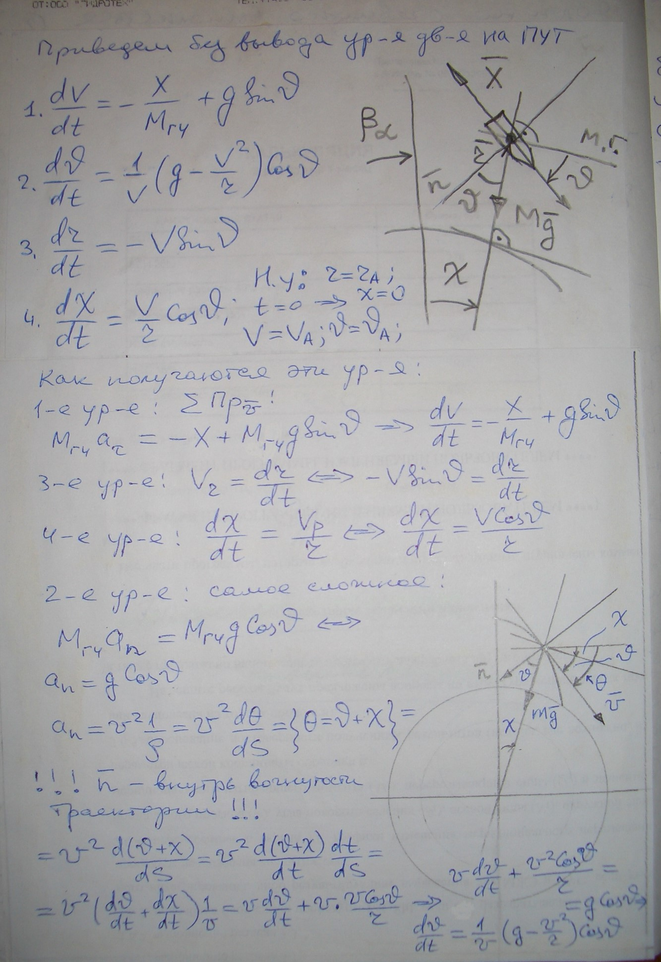 Приведем без вывода ур-я дв-я на ПУТ
1. dV/dt = - X/Mгч + g Sinϑ
2. dϑ/dt = 1/V (g - V²/r) Cosϑ
3. dr/dt = - V Sinϑ
4. dχ/dt = V/r Cosϑ;
Н.у.: r = r_A;
t=0 ⇒ χ=0
V=V_A; ϑ=ϑ_A;
X̄
β_α
М.г.
r̄
n̄
ϑ
ϑ
Mḡ
χ
Как получаются эти ур-я:
1-е ур-е: ΣПр_v̄!
Mгч a_τ = -X + Mгч g Sinϑ ⇒ dV/dt = - X/Mгч + g Sinϑ
3-е ур-е: V_r = dr/dt ⇔ -V Sinϑ = dr/dt
4-е ур-е: dχ/dt = Vр/r ⇔ dχ/dt = V Cosϑ/r
2-е ур-е: самое сложное:
Mгч a_n = Mгч g Cosϑ ⇔
a_n = g Cosϑ
a_n = v² 1/ρ = v² dθ/dS = {θ = ϑ + χ} =
!!! n̄ - внутрь вогнутости
траектории !!!
= v² d(ϑ+χ)/dS = v² d(ϑ+χ)/dt dt/dS =
= v² (dϑ/dt + dχ/dt) 1/v = v dϑ/dt + v · v Cosϑ/r ⇒
v dϑ/dt + v² Cosϑ/r =
= g Cosϑ ⇒
dϑ/dt = 1/v (g - v²/r) Cosϑ
χ
ϑ
θ
v̄
n̄
ϑ
mḡ
χ